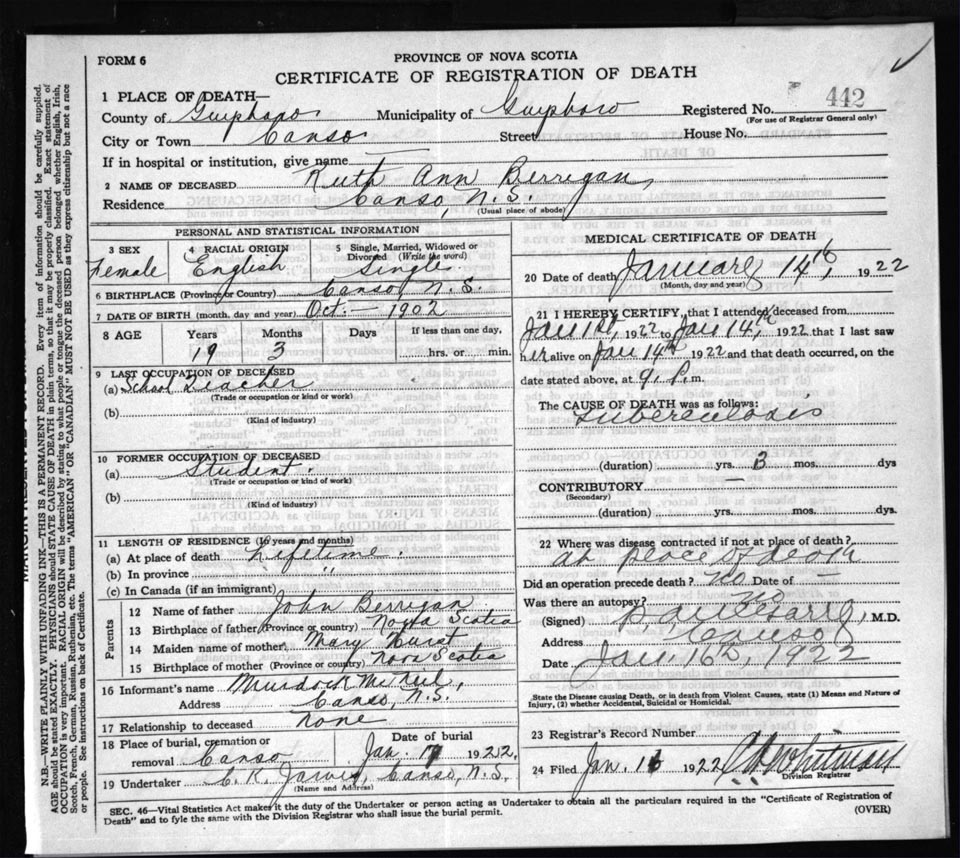 FORM 6
PROVINCE OF NOVA SCOTIA
CERTIFICATE OF REGISTRATION OF DEATH
1 PLACE OF DEATH—
County of Guysboro Municipality of Guysboro Registered No. 442
(For use of Registrar General only)
City or Town Canso Street House No.
If in hospital or institution, give name
2 NAME OF DECEASED Ruth Ann Berrigan,
Residence Canso, N.S.
(Usual place of abode)
PERSONAL AND STATISTICAL INFORMATION
3 SEX 4 RACIAL ORIGIN 5 Single, Married, Widowed or Divorced (Write the word)
Female English Single
6 BIRTHPLACE (Province or Country) Canso, N.S.
7 DATE OF BIRTH (month, day and year) Oct. — 1902
8 AGE Years Months Days If less than one day,
19 3 hrs. or min.
9 LAST OCCUPATION OF DECEASED
(a) School Teacher
(Trade or occupation or kind of work)
(b)
(Kind of industry)
10 FORMER OCCUPATION OF DECEASED
(a) Student.
(Trade or occupation or kind of work)
(b)
(Kind of industry)
11 LENGTH OF RESIDENCE (in years and months)
(a) At place of death Lifetime.
(b) In province "
(c) In Canada (if an immigrant)
Parents
12 Name of father John Berrigan
13 Birthplace of father (Province or country) Nova Scotia
14 Maiden name of mother Mary Hurst
15 Birthplace of mother (Province or country) Nova Scotia
16 Informant's name Murdock McNeil,
Address Canso, N.S.
17 Relationship to deceased None
18 Place of burial, cremation or removal Canso
Date of burial Jan. 17 1922,
19 Undertaker C. K. Jarvis, Canso, N.S.
(Name and Address)
MEDICAL CERTIFICATE OF DEATH
20 Date of death January 14th, 1922
(Month, day and year)
21 I HEREBY CERTIFY, that I attended deceased from
Jan 1st, 1922 to Jan 14th, 1922 that I last saw
her alive on Jan 14th 1922 and that death occurred, on the
date stated above, at 9 P.m.
The CAUSE OF DEATH was as follows:
Tuberculosis
(duration) yrs. 3 mos. dys
CONTRIBUTORY —
(Secondary)
(duration) yrs. mos. dys.
22 Where was disease contracted if not at place of death?
at place of death
Did an operation precede death? No Date of —
Was there an autopsy? No
(Signed) M.D.
Address Canso
Date Jan 16th, 1922
State the Disease causing Death, or in death from Violent Causes, state (1) Means and Nature of
Injury, (2) whether Accidental, Suicidal or Homicidal.
23 Registrar's Record Number
24 Filed Jan. 16 1922 Whitman
Division Registrar
SEC. 46—Vital Statistics Act makes it the duty of the Undertaker or person acting as Undertaker to obtain all the particulars required in the "Certificate of Registration of
Death" and to fyle the same with the Division Registrar who shall issue the burial permit. (OVER)
N.B.—WRITE PLAINLY WITH UNFADING INK—THIS IS A PERMANENT RECORD. Every item of information should be carefully supplied.
AGE should be stated EXACTLY. PHYSICIANS should STATE CAUSE OF DEATH in plain terms, so that it may be properly classified. Exact statement of
OCCUPATION is very important. RACIAL ORIGIN will be described by stating to what people or tongue the deceased person belonged whether English, Irish,
Scotch, French, German, Russian, Ruthenian, etc. The terms "AMERICAN" or "CANADIAN" MUST NOT BE USED as they express citizenship but not a race
or people. See instructions on back of Certificate.